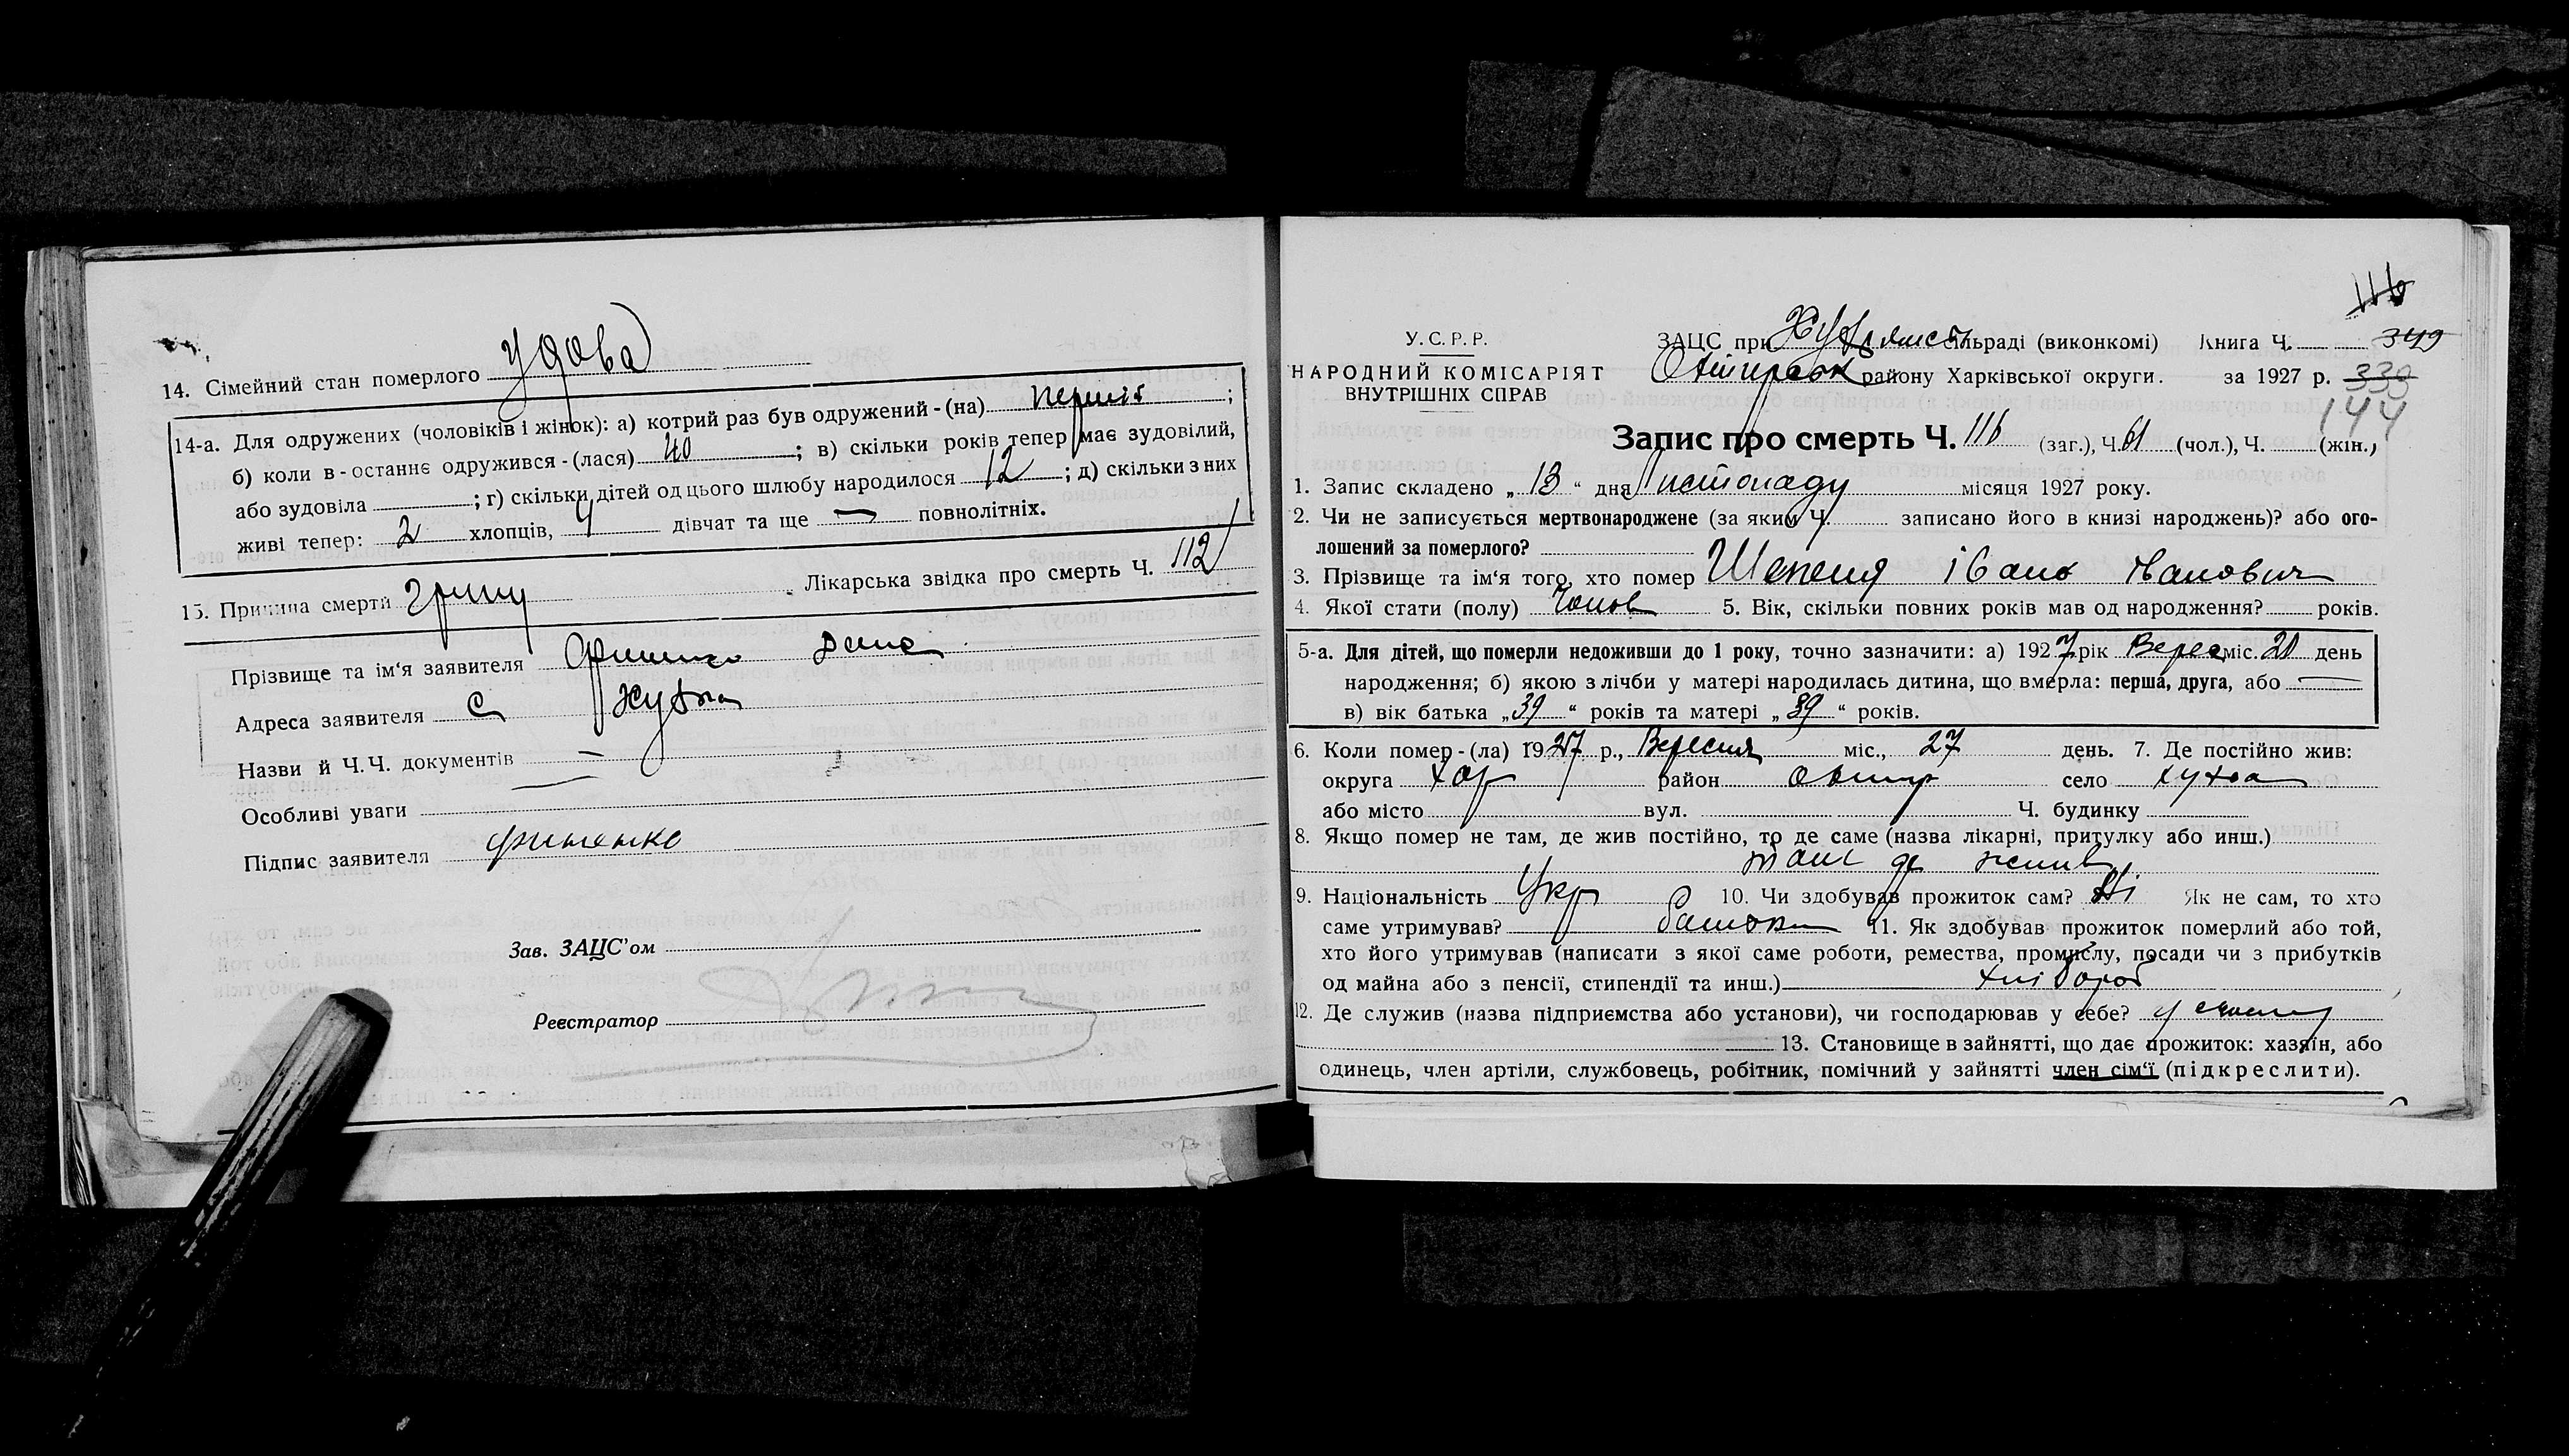 14. Сімейний стан померлого удова
14-а. Для одружених (чоловіків і жінок): а) котрий раз був одружений-(на) перший;
б) коли в-останнє одружився-(лася) 40; в) скільки років тепер має зудовілий,
або зудовіла ; г) скільки дітей од цього шлюбу народилося 12; д) скільки з них
живі тепер: 2 хлопців, 4 дівчат та ще — повнолітніх.
15. Причина смерти Лікарська звідка про смерть Ч. 112
Прізвище та ім'я заявителя
Адреса заявителя с
Назви й Ч.Ч. документів —
Особливі уваги
Підпис заявителя
Зав. ЗАЦС'ом
Реєстратор
116
У.С.Р.Р.
ЗАЦС при сільраді (виконкомі) Книга Ч. 349
НАРОДНИЙ КОМІСАРІЯТ
ВНУТРІШНІХ СПРАВ
району Харківської округи. за 1927 р. 339
144
Запис про смерть Ч. 116 (заг.), Ч. 61 (чол.), Ч. (жін.)
1. Запис складено „13“ дня Листопаду місяця 1927 року.
2. Чи не записується мертвонароджене (за яким Ч. записано його в книзі народжень)? або ого-
лошений за померлого?
3. Прізвище та ім'я того, хто помер Шепеля Іван Іванович
4. Якої стати (полу) Чолов 5. Вік, скільки повних років мав од народження? років.
5-а. Для дітей, що померли недоживши до 1 року, точно зазначити: а) 1927 рік Верес міс. 20 день
народження; б) якою з лічби у матері народилась дитина, що вмерла: перша, друга, або —
в) вік батька „39“ років та матері „39“ років.
6. Коли помер-(ла) 1927 р., Вересня міс., 27 день. 7. Де постійно жив:
округа Хар район село
або місто вул. Ч. будинку
8. Якщо помер не там, де жив постійно, то де саме (назва лікарні, притулку або инш.)
там де жив
9. Національність Укр 10. Чи здобував прожиток сам? Ні Як не сам, то хто
саме утримував? батьки 11. Як здобував прожиток померлий або той,
хто його утримував (написати з якої саме роботи, ремества, промислу, посади чи з прибутків
од майна або з пенсії, стипендії та инш.) хлібороб
12. Де служив (назва підприємства або установи), чи господарював у себе?
13. Становище в зайнятті, що дає прожиток: хазяїн, або
одинець, член артіли, службовець, робітник, помічний у зайнятті член сім'ї (підкреслити).